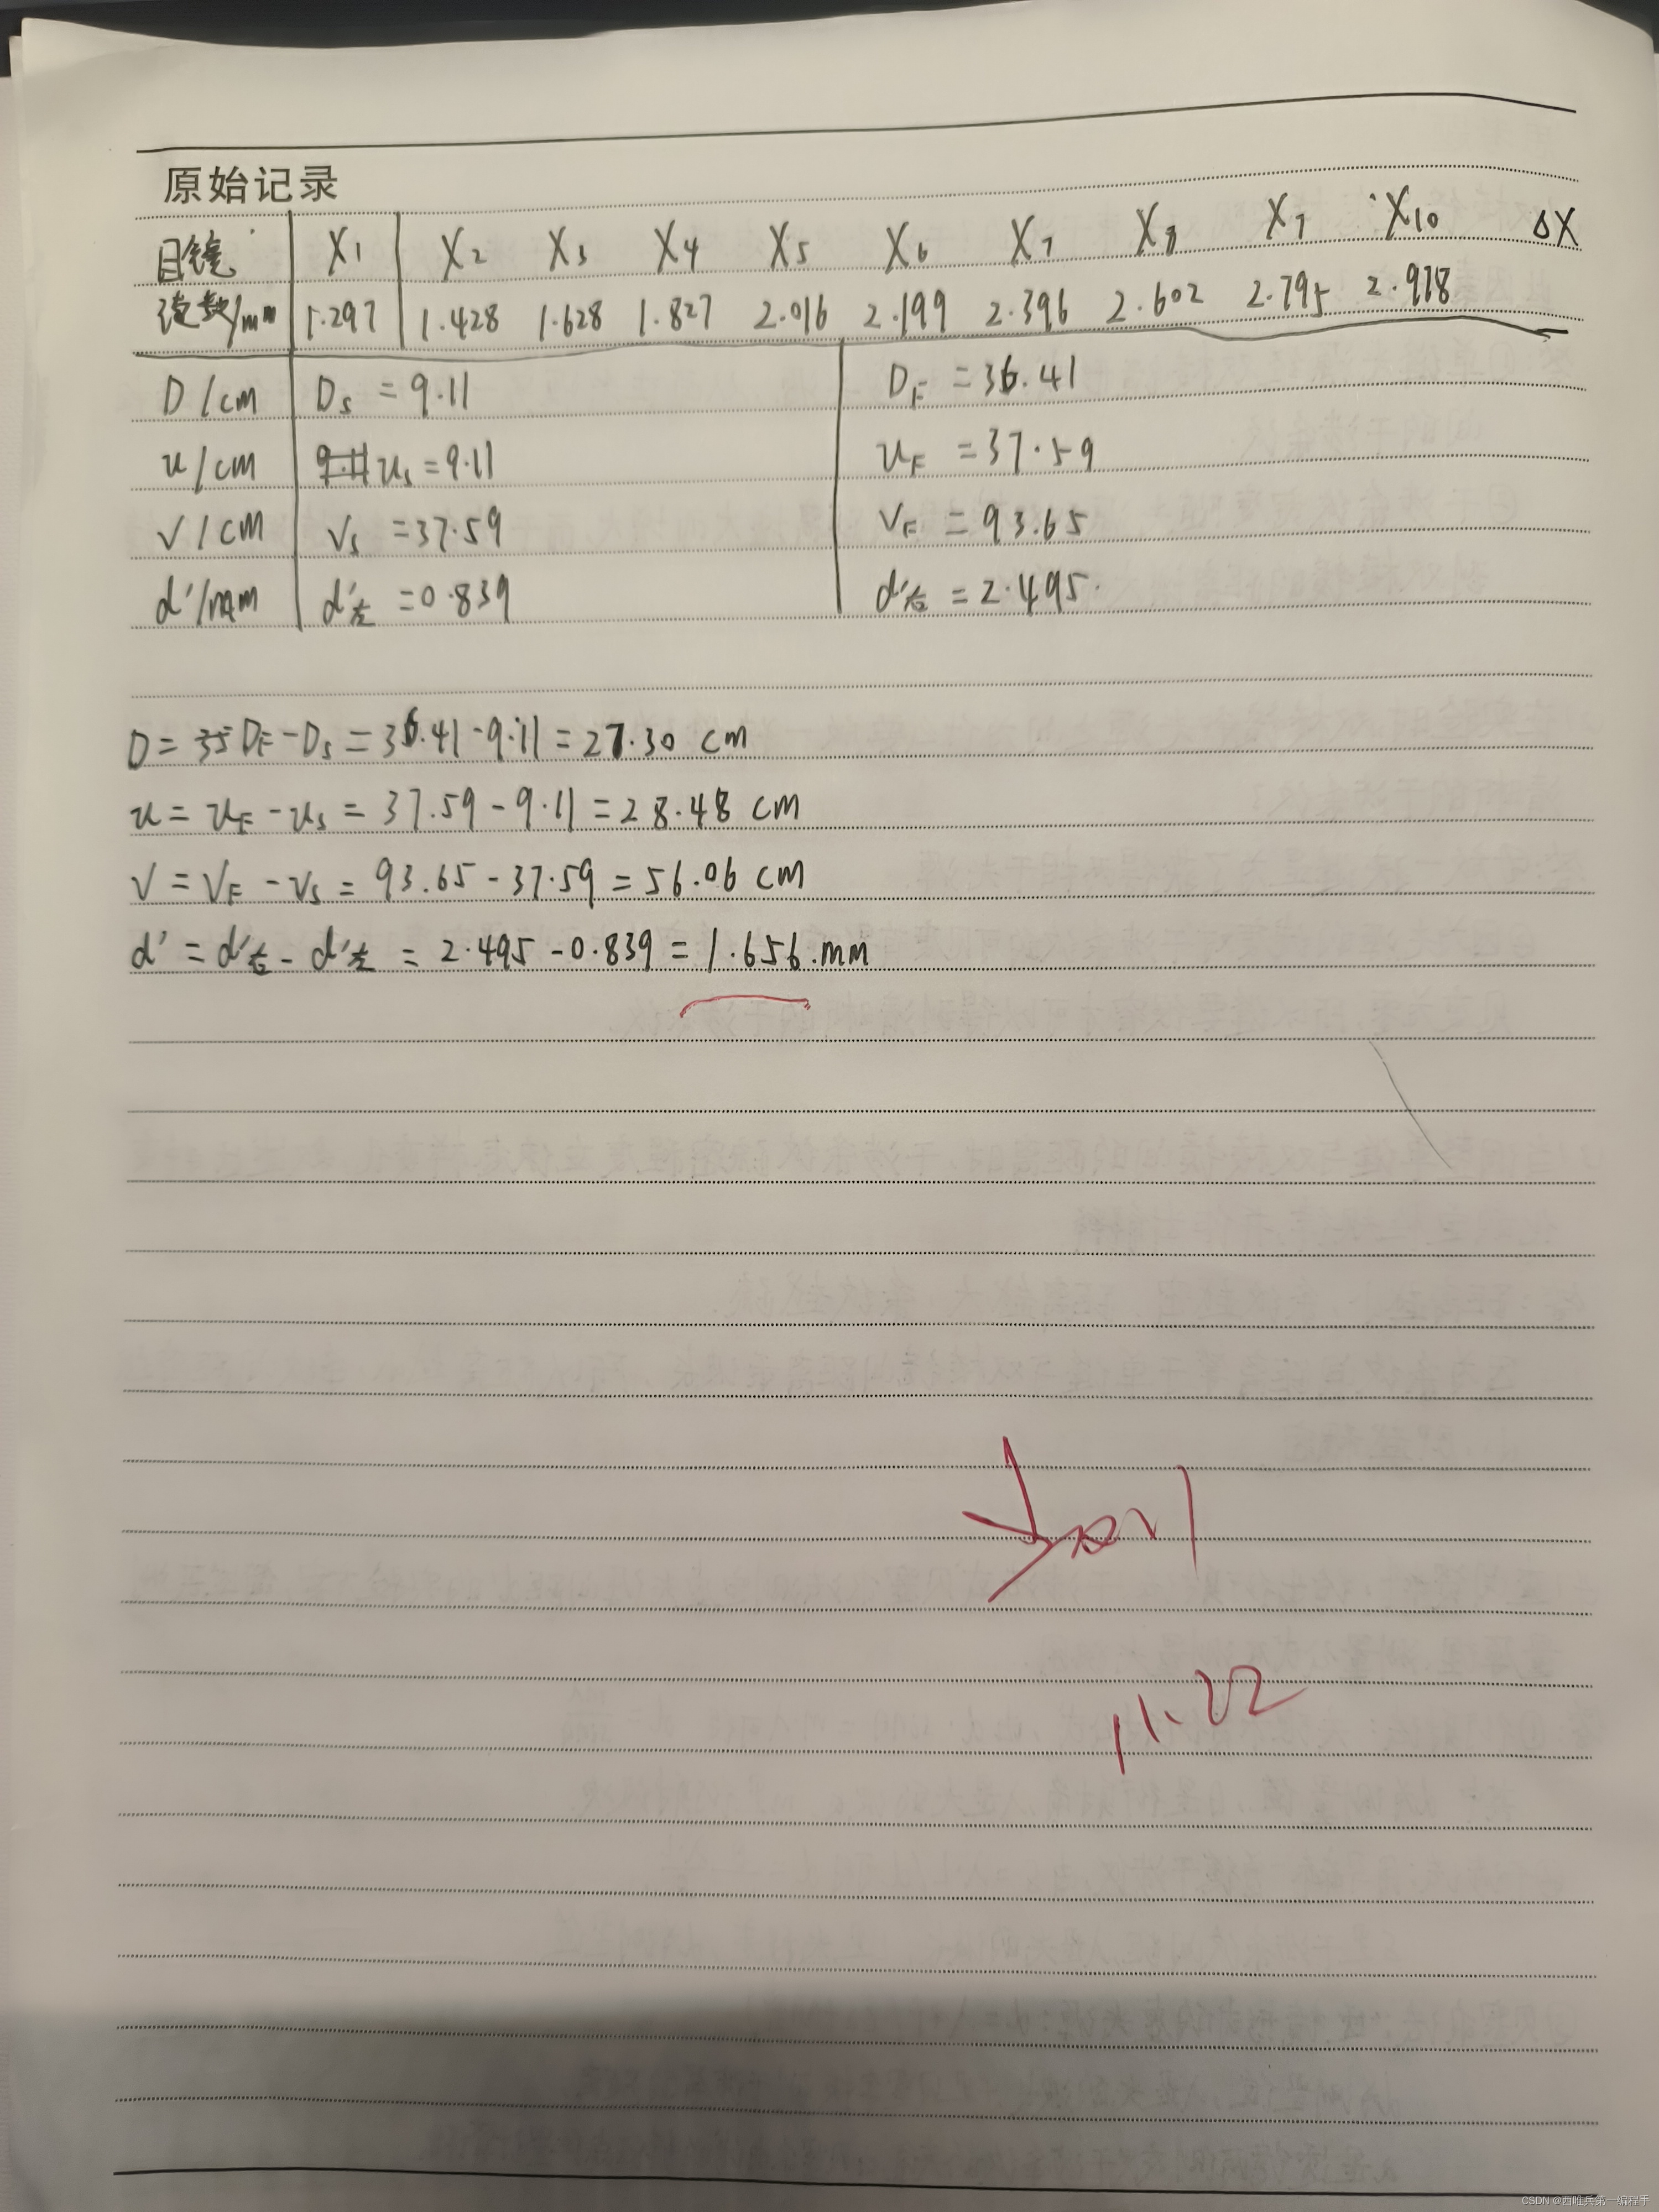 原始记录
目镜 X1 X2 X3 X4 X5 X6 X7 X8 X9 X10 ΔX
读数/mm 1.297 1.428 1.628 1.827 2.016 2.199 2.396 2.602 2.795 2.978
D/cm Ds = 9.11 DF = 36.41
u/cm us = 9.11 uF = 37.59
v/cm vs = 37.59 vF = 93.65
d'/mm d'左 = 0.839 d'右 = 2.495
D = DF - Ds = 36.41 - 9.11 = 27.30 cm
u = uF - us = 37.59 - 9.11 = 28.48 cm
v = vF - vs = 93.65 - 37.59 = 56.06 cm
d' = d'右 - d'左 = 2.495 - 0.839 = 1.656 mm
11.22
CSDN @西唯兵第一编程手